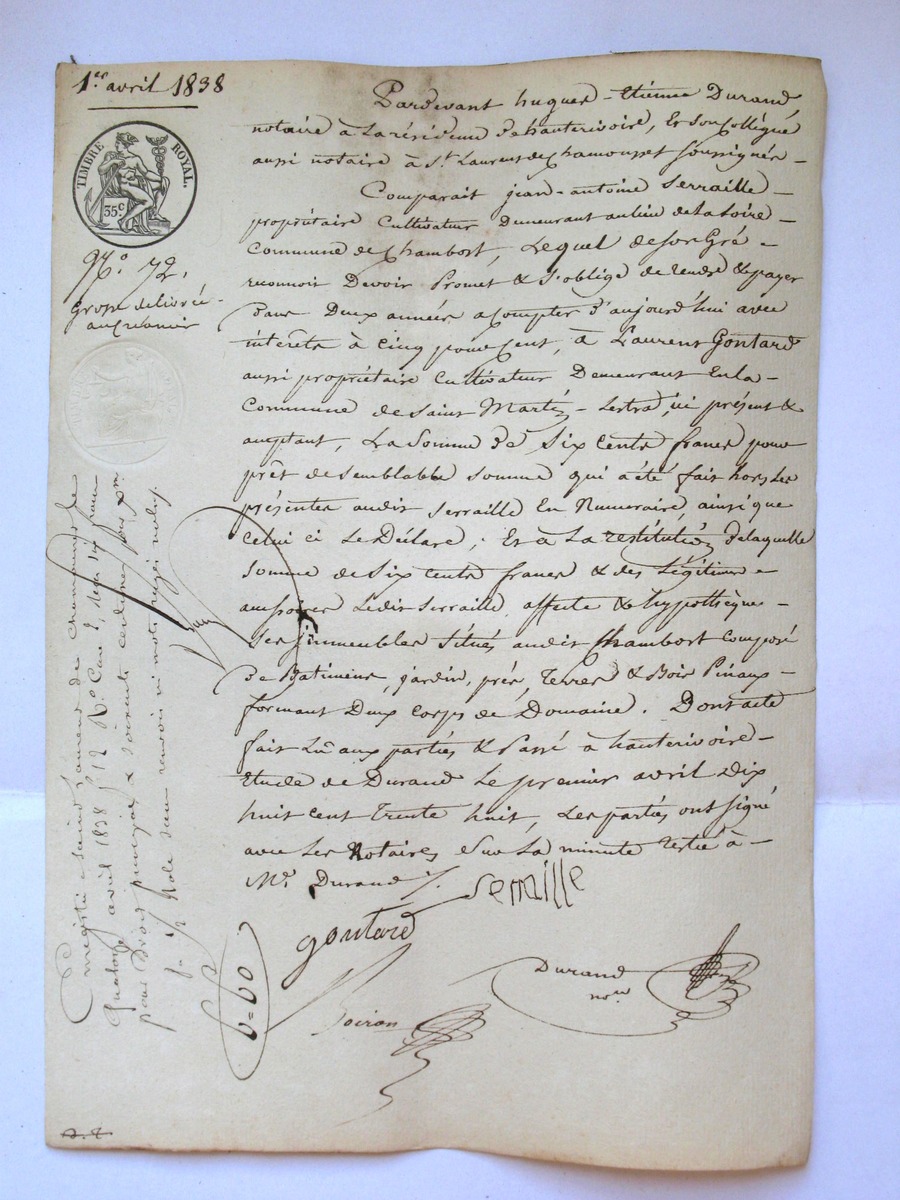 1er avril 1838
TIMBRE ROYAL.
35c.
No. 72.
Grosse délivrée
au créancier
Pardevant hugues-Etienne Durand,
notaire à La résidence d'hauterivoire, Et son Collègue
aussi notaire à St Laurent de Chamousset Soussignés
Comparait jean-antoine Serraille
propriétaire Cultivateur Demeurant au lieu de La Loire
Commune de Chambost, Lequel de son Gré
reconnoit Devoir Promet & S'oblige de rendre & payer
Dans Deux années a Compter d'aujourd'hui avec
intérêts à Cinq pour Cent, à Laurent Gontard
aussi propriétaire Cultivateur Demeurant En la
Commune de Saint Martin Lestra, ici présent &
acceptant, La Somme de Six Cents francs pour
prêt de Semblable Somme qui a été fait hors les
présentes audit Serraille En Numeraire, ainsi que
Celui ci Le Déclare; Et à La restitution de laquelle
Somme de Six Cents francs & des Légitimes
accessoires Ledit Serraille affecte & hypothèque
Ses immeubles Situés audit Chambost Composé
De Batiment, jardin, prés, Terres & Bois Pinaux
formant Deux Corps de Domaine. Dont acte
fait Lu aux parties & Passé à hauterivoire
Etude de Durand Le premier avril Dix
huit Cent Trente huit, Les parties ont Signé
avec Les Notaires Sur La minute restée à
Me. Durand
Serraille
gontard
Durand
nore
Coiron
6=60
Enregistré à Saint Laurent de Chamousset le
quatorze avril 1838 fo 12 Ro Cases 2, reçu six francs
pour Droit principal & soixante centimes pour xme
Role sans renvoi ni mots rayés nuls